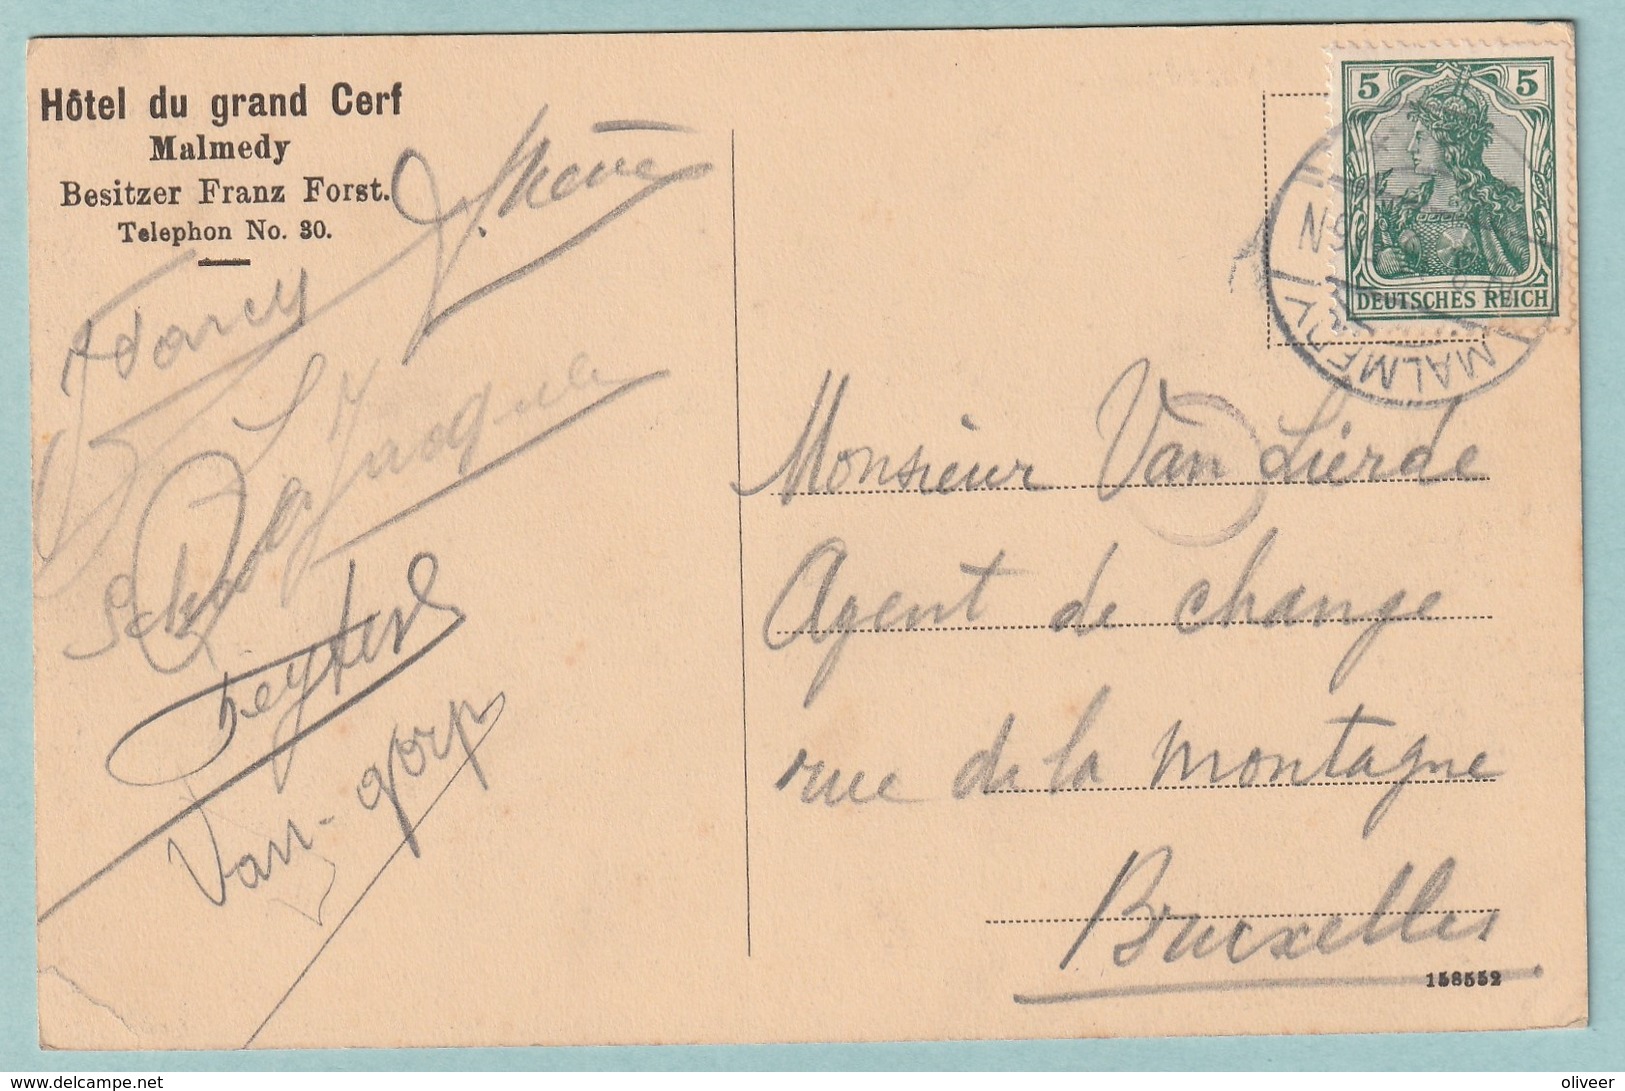 Hôtel du grand Cerf
Malmedy
Besitzer Franz Forst.
Telephon No. 30.
Darcy
Jacque
Van-gorp
5 5
DEUTSCHES REICH
MALMEDY
Monsieur Van Lierde
Agent de change
rue de la Montagne
Bruxelles
158552
oliveer
delcampe.net